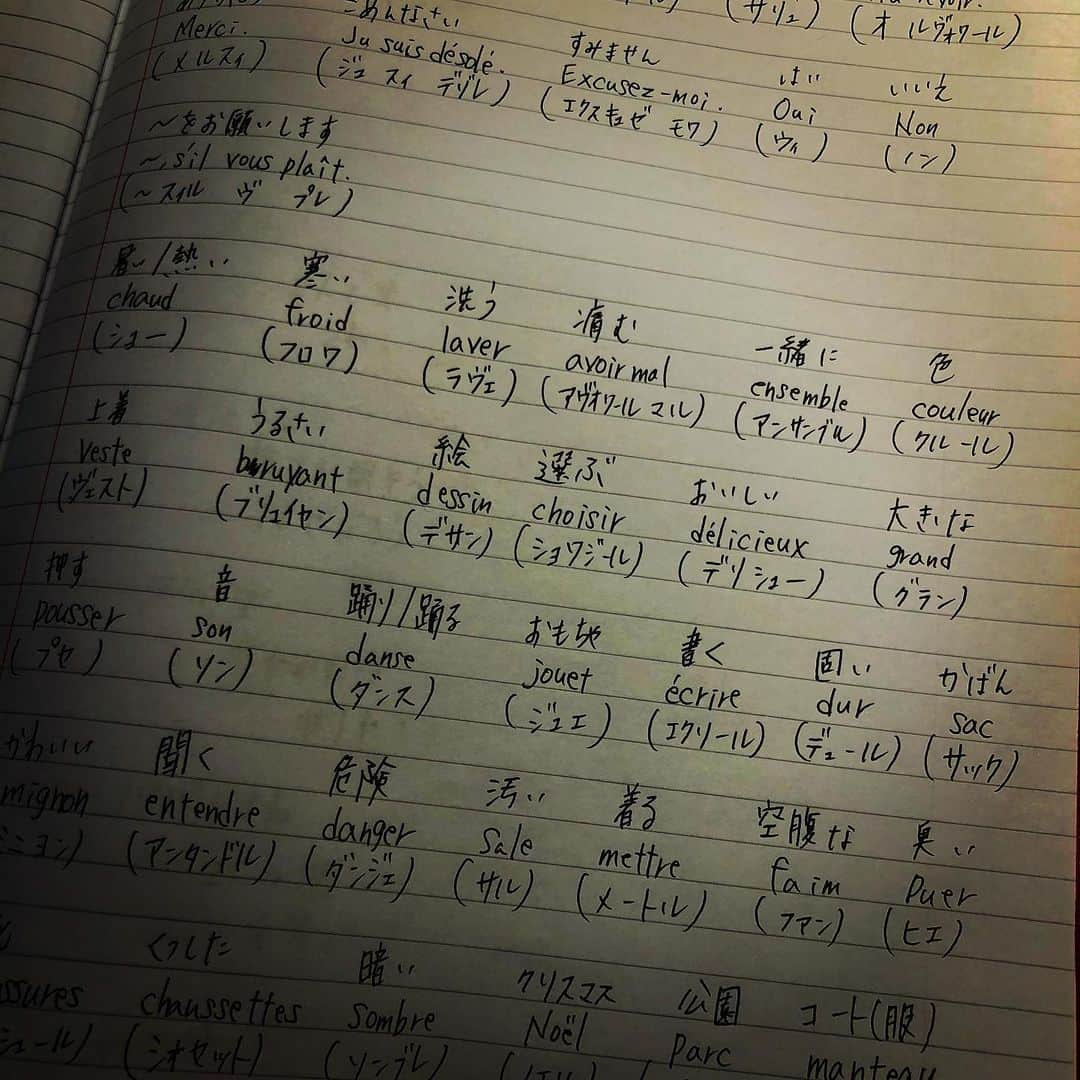 ごめんなさい
Merci. Ju suis désolé. すみません はい いいえ
(メルスィ) (ジュ スィ デゾレ) Excusez-moi. Oui Non
(サリュ) (オ ルヴォワール)
(エクスキュゼ モワ) (ウィ) (ノン)
～をお願いします
～, s'il vous plaît.
(～スィル ヴ プレ)
暑い/熱い 寒い 洗う 痛む 一緒に 色
chaud froid laver avoir mal ensemble couleur
(ショー) (フロワ) (ラヴェ) (アヴォワール マル) (アンサンブル) (クルール)
上着 うるさい 絵 選ぶ おいしい 大きな
veste bruyant dessin choisir délicieux grand
(ヴェスト) (ブリュイヤン) (デサン) (ショワジール) (デリシュー) (グラン)
押す 音 踊り/踊る おもちゃ 書く 固い かばん
pousser son danse jouet écrire dur sac
(プセ) (ソン) (ダンス) (ジュエ) (エクリール) (デュール) (サック)
かわいい 聞く 危険 汚い 着る 空腹な 臭い
mignon entendre danger sale mettre faim puer
(ミニヨン) (アンタンドル) (ダンジェ) (サル) (メートル) (ファン) (ピエ)
くつした 暗い クリスマス 公園 コート(服)
ssures chaussettes sombre Noël parc manteau
シュール) (シオセット) (ソンブレ)